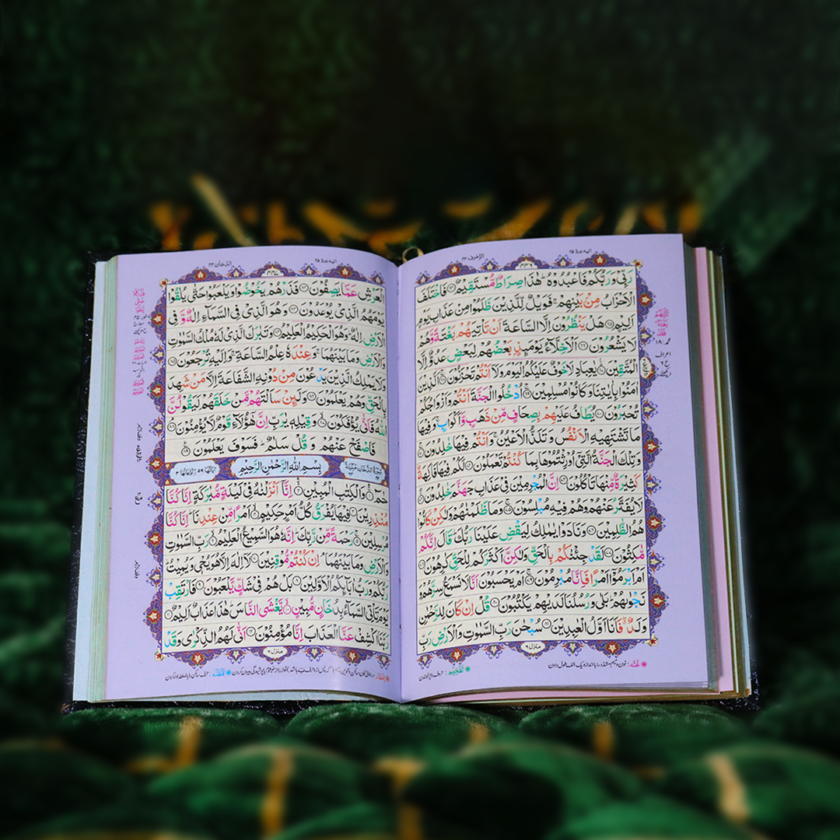 الزخرف ٤٣
الیه یرد ٢٥
رَبِّیْ وَرَبُّكُمْ فَاعْبُدُوْهُ هٰذَا صِرَاطٌ مُّسْتَقِیْمٌ فَاخْتَلَفَ
الْاَحْزَابُ مِنْۢ بَیْنِهِمْ فَوَیْلٌ لِّلَّذِیْنَ ظَلَمُوْا مِنْ عَذَابِ یَوْمٍ
اَلِیْمٍ هَلْ یَنْظُرُوْنَ اِلَّا السَّاعَةَ اَنْ تَاْتِیَهُمْ بَغْتَةً وَّهُمْ
لَا یَشْعُرُوْنَ اَلْاَخِلَّآءُ یَوْمَئِذٍۭ بَعْضُهُمْ لِبَعْضٍ عَدُوٌّ اِلَّا
الْمُتَّقِیْنَ یٰعِبَادِ لَا خَوْفٌ عَلَیْكُمُ الْیَوْمَ وَلَاۤ اَنْتُمْ تَحْزَنُوْنَ اَلَّذِیْنَ
اٰمَنُوْا بِاٰیٰتِنَا وَكَانُوْا مُسْلِمِیْنَ اُدْخُلُوا الْجَنَّةَ اَنْتُمْ وَاَزْوَاجُكُمْ
تُحْبَرُوْنَ یُطَافُ عَلَیْهِمْ بِصِحَافٍ مِّنْ ذَهَبٍ وَّاَكْوَابٍ وَفِیْهَا
مَا تَشْتَهِیْهِ الْاَنْفُسُ وَتَلَذُّ الْاَعْیُنُ وَاَنْتُمْ فِیْهَا خٰلِدُوْنَ
وَتِلْكَ الْجَنَّةُ الَّتِیْۤ اُوْرِثْتُمُوْهَا بِمَا كُنْتُمْ تَعْمَلُوْنَ لَكُمْ فِیْهَا فَاكِهَةٌ
كَثِیْرَةٌ مِّنْهَا تَاْكُلُوْنَ اِنَّ الْمُجْرِمِیْنَ فِیْ عَذَابِ جَهَنَّمَ خٰلِدُوْنَ
لَا یُفَتَّرُ عَنْهُمْ وَهُمْ فِیْهِ مُبْلِسُوْنَ وَمَا ظَلَمْنٰهُمْ وَلٰكِنْ كَانُوْا
هُمُ الظّٰلِمِیْنَ وَنَادَوْا یٰمٰلِكُ لِیَقْضِ عَلَیْنَا رَبُّكَ قَالَ اِنَّكُمْ
مّٰكِثُوْنَ لَقَدْ جِئْنٰكُمْ بِالْحَقِّ وَلٰكِنَّ اَكْثَرَكُمْ لِلْحَقِّ كٰرِهُوْنَ
اَمْ اَبْرَمُوْۤا اَمْرًا فَاِنَّا مُبْرِمُوْنَ اَمْ یَحْسَبُوْنَ اَنَّا لَا نَسْمَعُ سِرَّهُمْ
وَنَجْوٰىهُمْ بَلٰى وَرُسُلُنَا لَدَیْهِمْ یَكْتُبُوْنَ قُلْ اِنْ كَانَ لِلرَّحْمٰنِ
وَلَدٌ فَاَنَا اَوَّلُ الْعٰبِدِیْنَ سُبْحٰنَ رَبِّ السَّمٰوٰتِ وَالْاَرْضِ رَبِّ
منزل ٦
الدخان ٤٤
الیه یرد ٢٥
الْعَرْشِ عَمَّا یَصِفُوْنَ فَذَرْهُمْ یَخُوْضُوْا وَیَلْعَبُوْا حَتّٰى یُلٰقُوْا
یَوْمَهُمُ الَّذِیْ یُوْعَدُوْنَ وَهُوَ الَّذِیْ فِی السَّمَآءِ اِلٰهٌ وَّفِی
الْاَرْضِ اِلٰهٌ وَهُوَ الْحَكِیْمُ الْعَلِیْمُ وَتَبٰرَكَ الَّذِیْ لَهٗ مُلْكُ السَّمٰوٰتِ
وَالْاَرْضِ وَمَا بَیْنَهُمَا وَعِنْدَهٗ عِلْمُ السَّاعَةِ وَاِلَیْهِ تُرْجَعُوْنَ
وَلَا یَمْلِكُ الَّذِیْنَ یَدْعُوْنَ مِنْ دُوْنِهِ الشَّفَاعَةَ اِلَّا مَنْ شَهِدَ
بِالْحَقِّ وَهُمْ یَعْلَمُوْنَ وَلَئِنْ سَاَلْتَهُمْ مَّنْ خَلَقَهُمْ لَیَقُوْلُنَّ
اللّٰهُ فَاَنّٰى یُؤْفَكُوْنَ وَقِیْلِهٖ یٰرَبِّ اِنَّ هٰۤؤُلَآءِ قَوْمٌ لَّا یُؤْمِنُوْنَ
فَاصْفَحْ عَنْهُمْ وَقُلْ سَلٰمٌ فَسَوْفَ یَعْلَمُوْنَ
بِسْمِ اللّٰهِ الرَّحْمٰنِ الرَّحِیْمِ
حٰمٓ وَالْكِتٰبِ الْمُبِیْنِ اِنَّاۤ اَنْزَلْنٰهُ فِیْ لَیْلَةٍ مُّبٰرَكَةٍ اِنَّا كُنَّا
مُنْذِرِیْنَ فِیْهَا یُفْرَقُ كُلُّ اَمْرٍ حَكِیْمٍ اَمْرًا مِّنْ عِنْدِنَا اِنَّا كُنَّا
مُرْسِلِیْنَ رَحْمَةً مِّنْ رَّبِّكَ اِنَّهٗ هُوَ السَّمِیْعُ الْعَلِیْمُ رَبِّ السَّمٰوٰتِ
وَالْاَرْضِ وَمَا بَیْنَهُمَا اِنْ كُنْتُمْ مُّوْقِنِیْنَ لَاۤ اِلٰهَ اِلَّا هُوَ یُحْیٖ وَیُمِیْتُ
رَبُّكُمْ وَرَبُّ اٰبَآئِكُمُ الْاَوَّلِیْنَ بَلْ هُمْ فِیْ شَكٍّ یَّلْعَبُوْنَ فَارْتَقِبْ
یَوْمَ تَاْتِی السَّمَآءُ بِدُخَانٍ مُّبِیْنٍ یَّغْشَى النَّاسَ هٰذَا عَذَابٌ اَلِیْمٌ
رَبَّنَا اكْشِفْ عَنَّا الْعَذَابَ اِنَّا مُؤْمِنُوْنَ اَنّٰى لَهُمُ الذِّكْرٰى وَقَدْ
منزل ٦